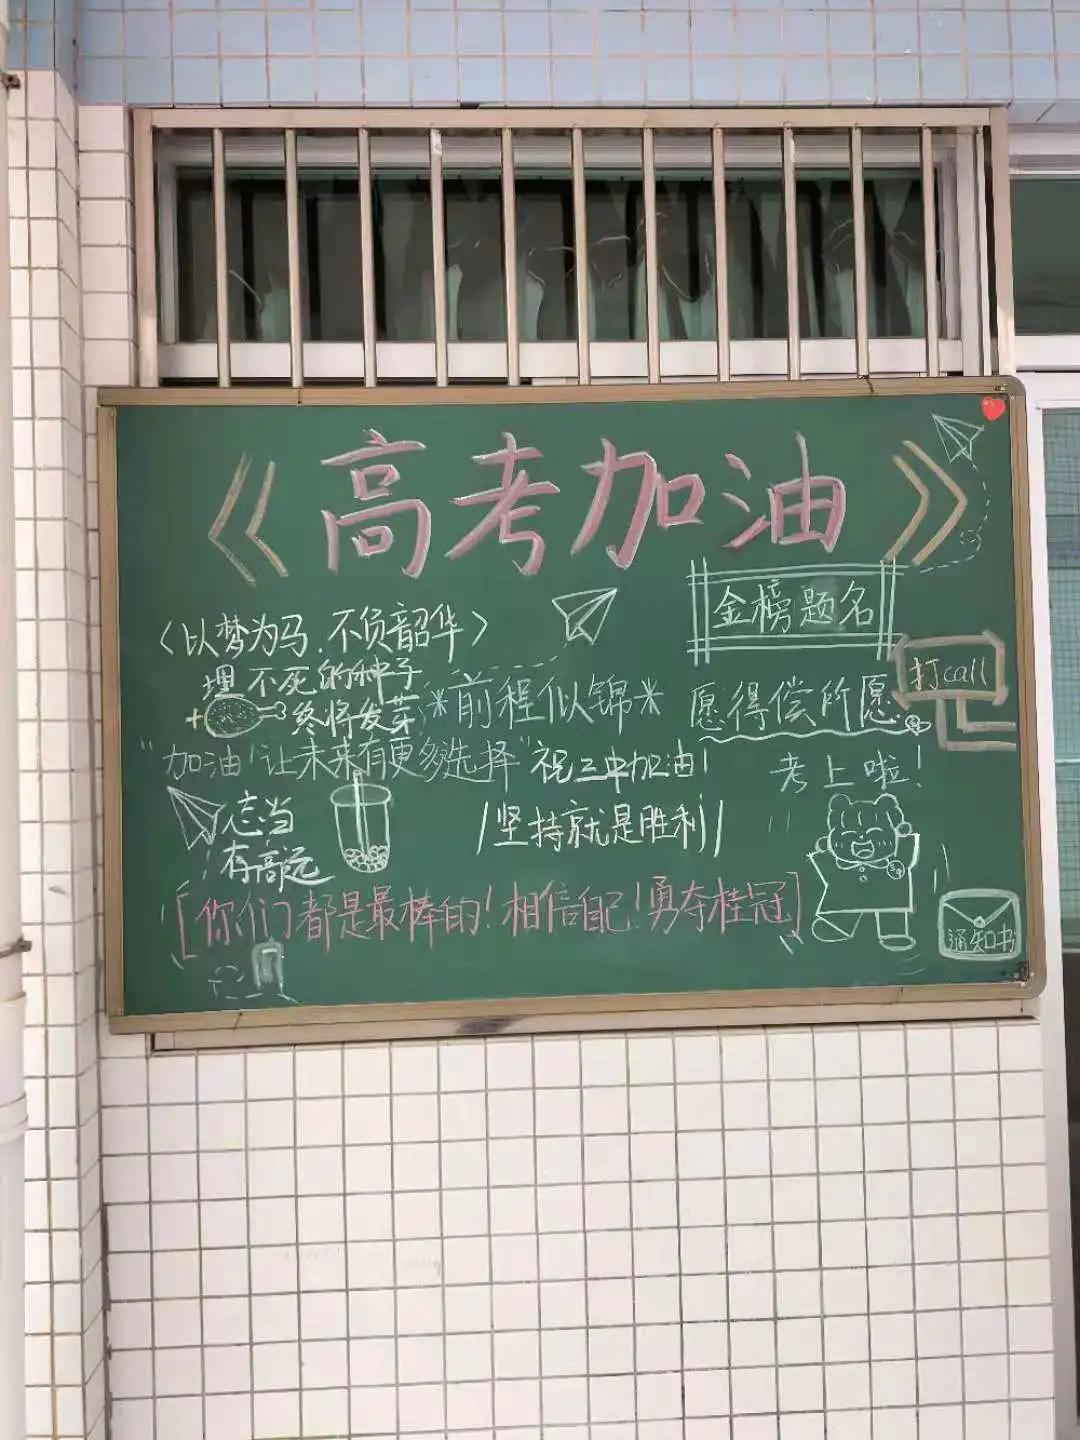 《高考加油》
金榜题名
〈以梦为马,不负韶华〉
打call
埋不死的种子
终将发芽
*前程似锦*
愿得偿所愿。
"加油!让未来有更多选择"
祝三中加油!
考上啦!
志当
有高远
/坚持就是胜利/
[你们都是最棒的!相信自己!勇夺桂冠]
通知书